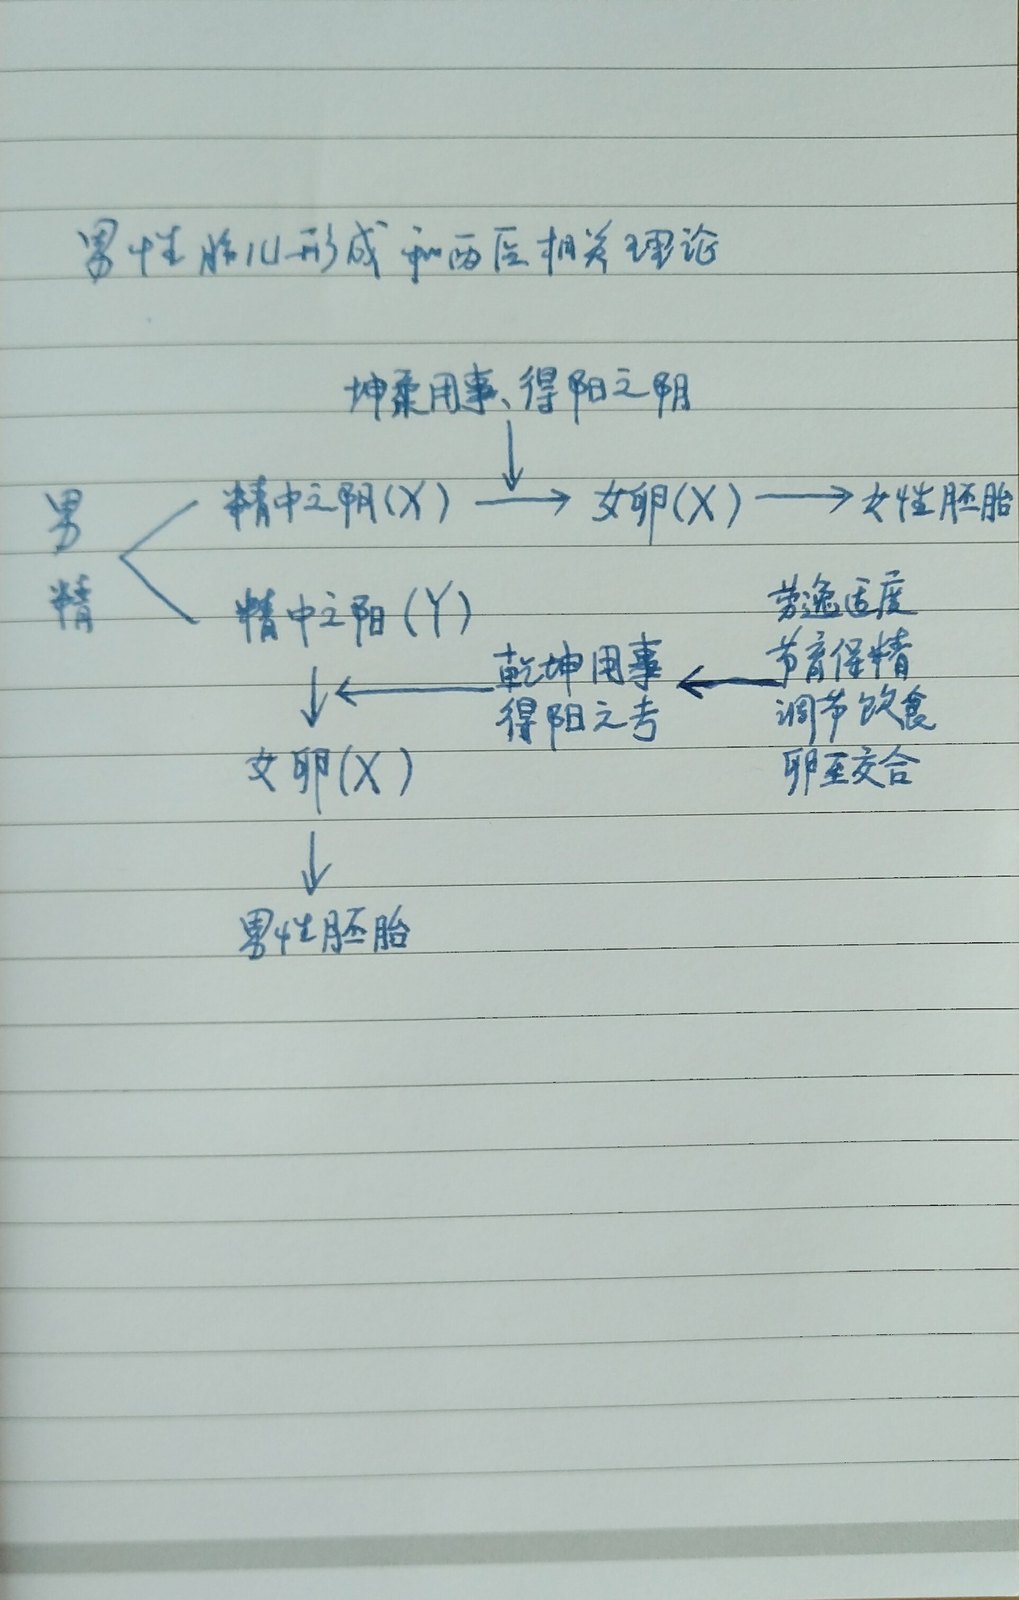 男性胎儿形成和西医相关理论
坤柔用事、得阳之阴
男精
精中之阴(X)
女卵(X)
女性胚胎
精中之阳(Y)
乾坤用事
得阳之考
劳逸适度
节育保精
调节饮食
卵至交合
女卵(X)
男性胚胎